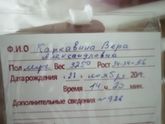 Ф.И.О Каркавина Вера
Александровна
Пол жен Вес 3250 Рост 54-34-36
Дата рождения „ 22 „ ноября 201 г.
Время 14 ч 23 мин.
Дополнительные сведения